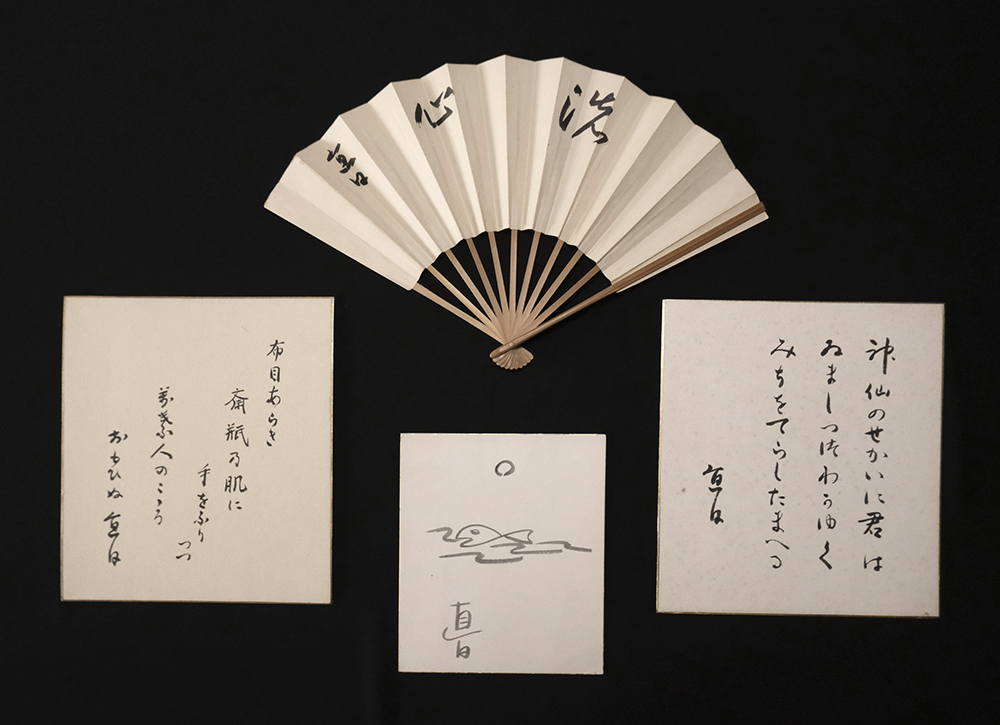 洗心
直日
布目あらき
斎瓶乃肌に
手をふりつつ
萬葉人のこゝろ
おもひぬ 直日
直日
神仙のせかいに君は
ゐましつつわかゆく
みちをてらしたまへる
直日